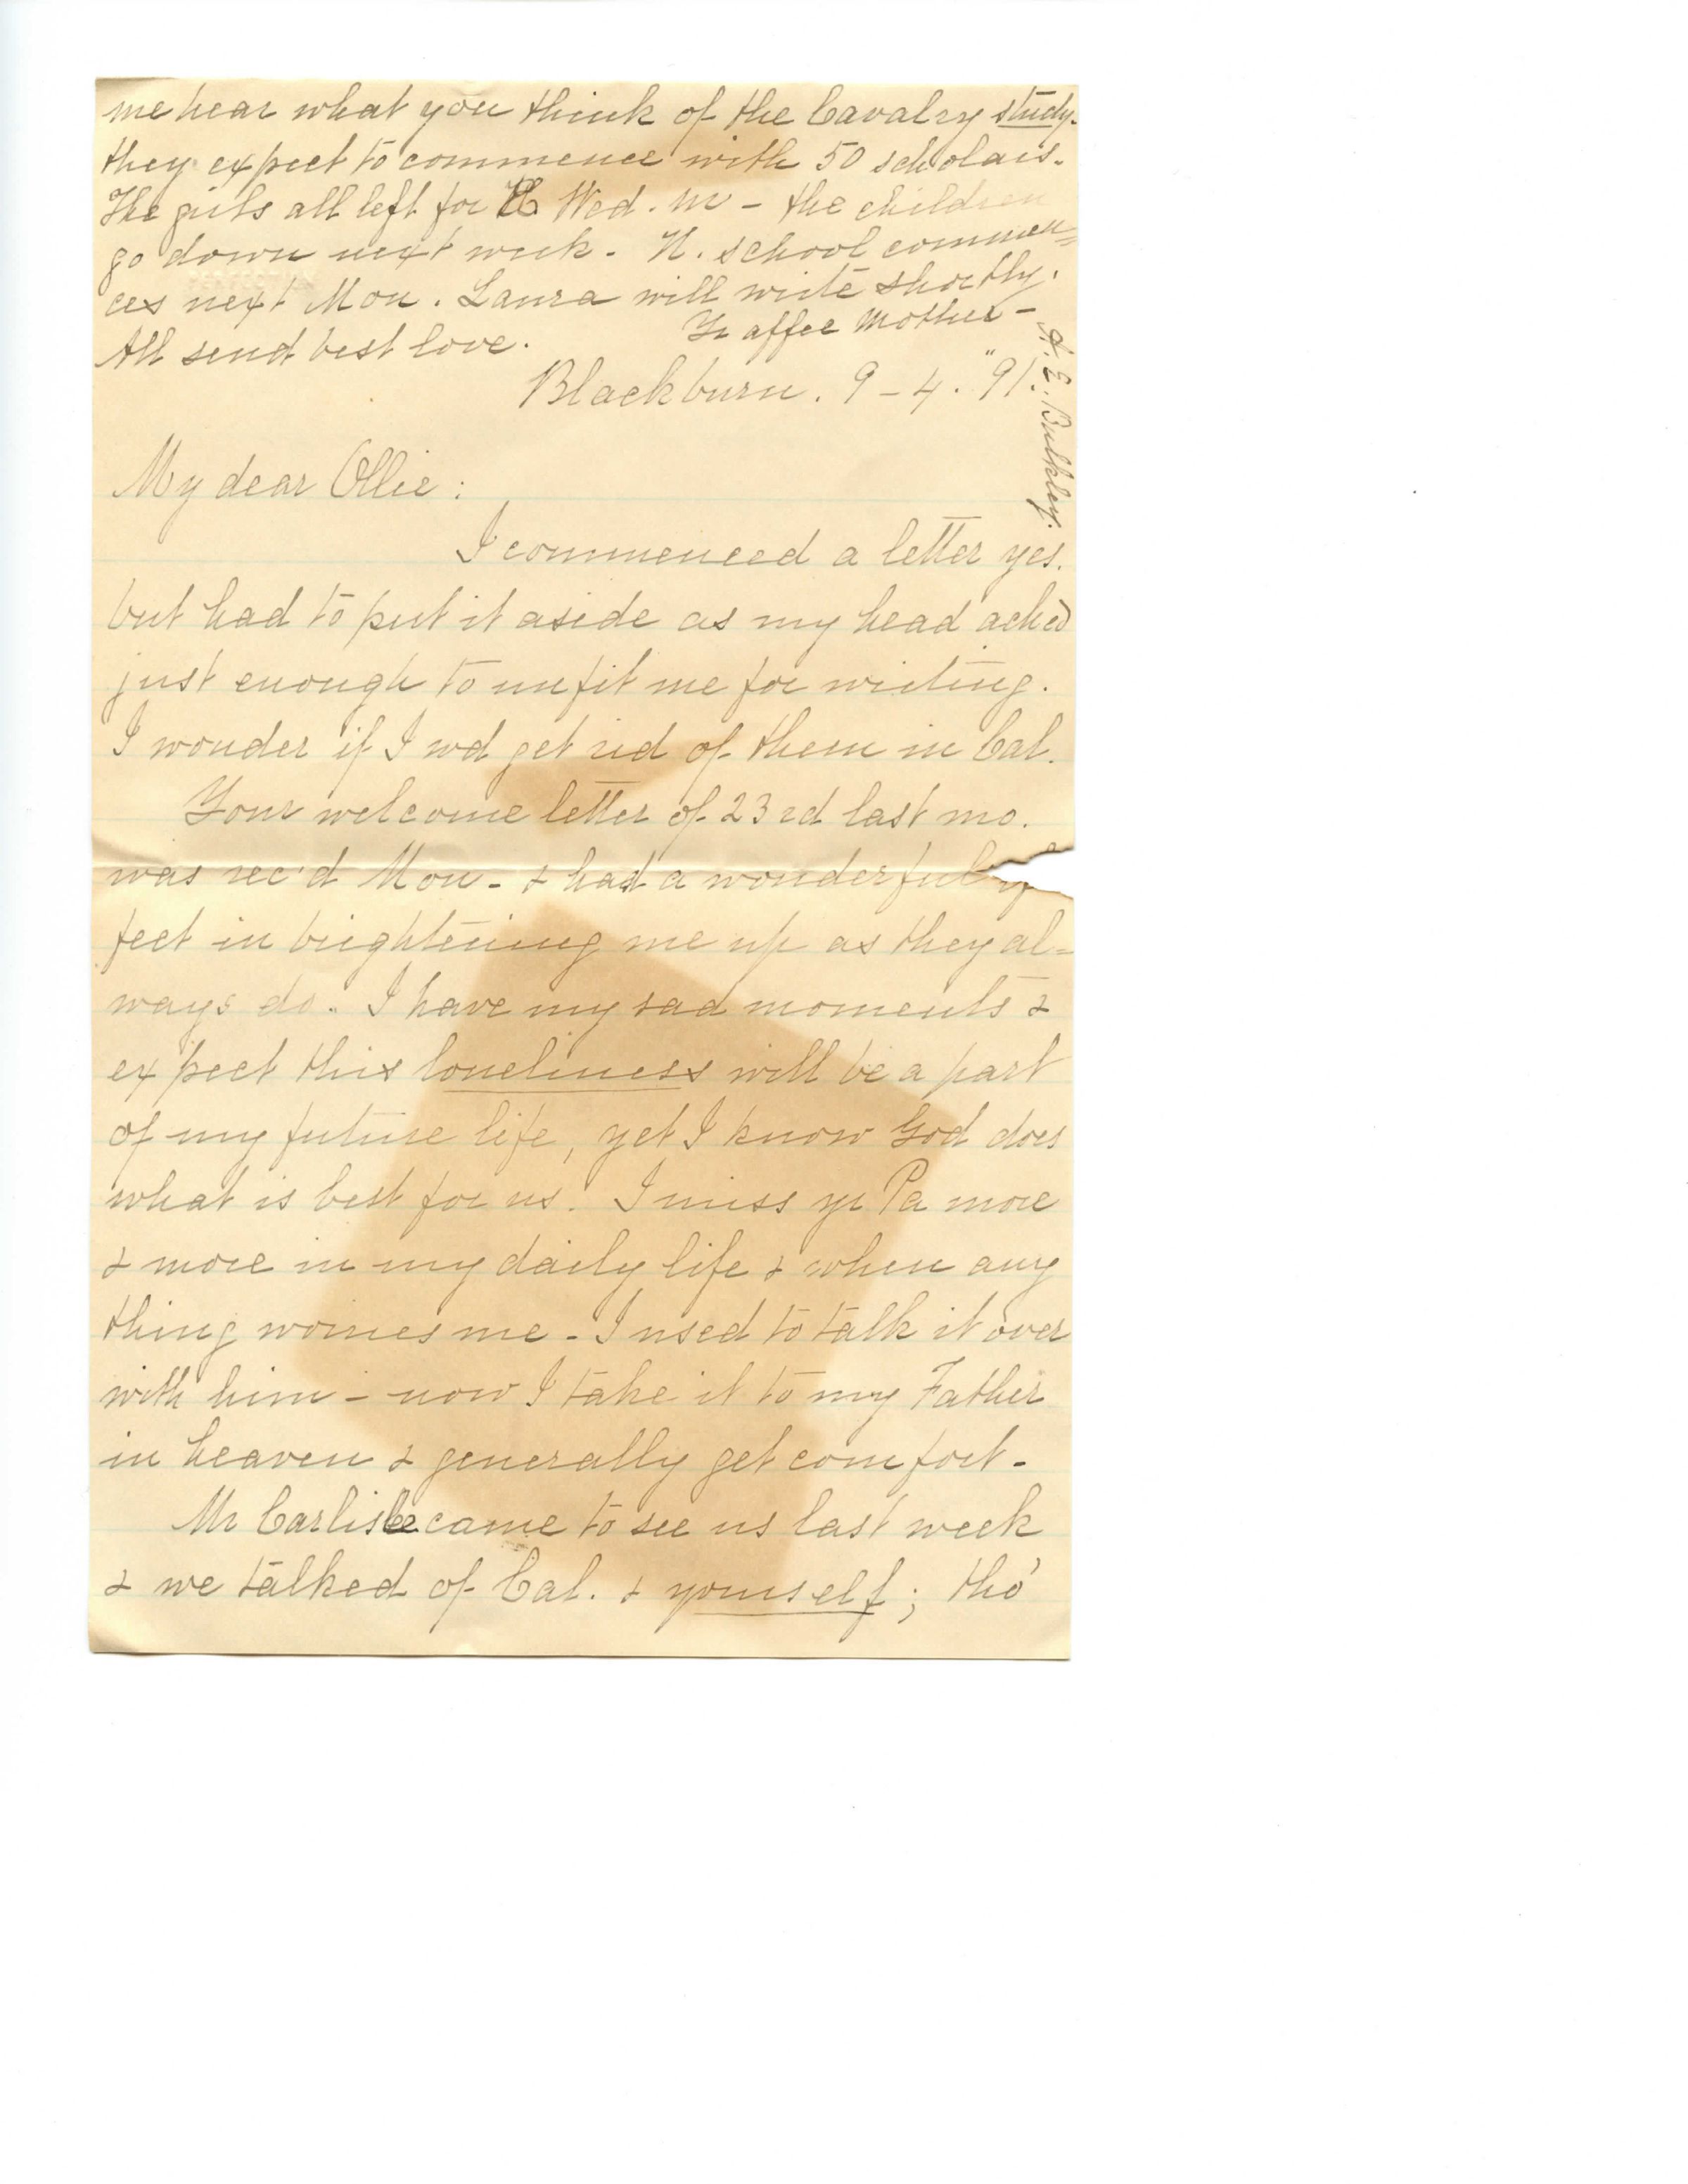 me hear what you think of the Cavalry study.
they expect to commence with 50 scholars.
The girls all left for Wed. m - the children
go down next week. N. school commen=
ces next Mon. Laura will write shortly.
All send best love. Yr affec Mother -
A. E. Bulkley.
Blackburn. 9-4. "91.
My dear Ollie:
I commenced a letter yes.
but had to put it aside as my head ached
just enough to unfit me for writing.
I wonder if I wd get rid of them in Cal.
Your welcome letter of 23rd last mo.
was rec'd Mon - & had a wonderful
fect in brightening me up as they al=
ways do. I have my sad moments &
expect this loneliness will be a part
of my future life, yet I know God does
what is best for us. I miss yr Pa more
& more in my daily life & when any
thing worries me - I used to talk it over
with him - now I take it to my Father
in heaven & generally get comfort -
Mr Carlisle came to see us last week
& we talked of Cal. & yourself; tho'